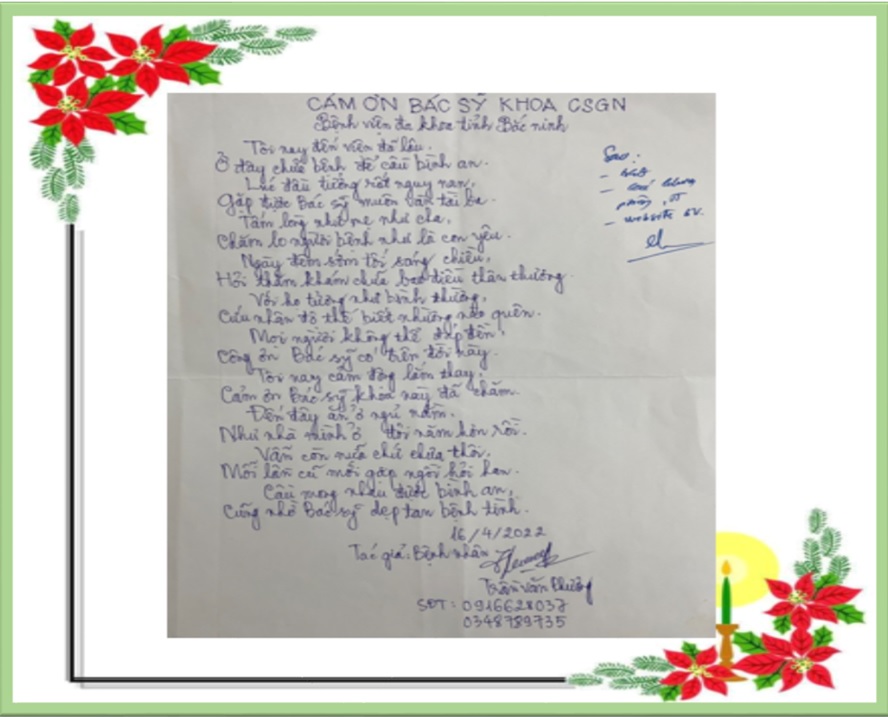 CẢM ƠN BÁC SỸ KHOA CSGN
Bệnh viện đa khoa tỉnh Bắc ninh
Tôi nay đến viện đã lâu.
Ở đây chữa bệnh để cầu bình an.
Lúc đầu tưởng rất nguy nan,
Gặp được Bác sỹ muôn vàn tài ba.
Tấm lòng như mẹ như cha,
Chăm lo người bệnh như là con yêu.
Ngày đêm sớm tối sáng chiều,
Hỏi thăm khám chữa bao điều thân thương.
Với họ tưởng như bình thường,
Cứu nhân độ thế biết nhường nào quên.
Mọi người không thể đáp đền,
Công ơn Bác sỹ có trên đời này.
Tôi nay cảm động lắm thay,
Cảm ơn Bác sỹ khoa này đã chăm.
Đến đây ăn ở ngủ nằm.
Như nhà mình ở đôi năm hơn rồi.
Vẫn còn nữa chứ chưa thôi,
Mỗi lần cứ mỗi gặp ngồi hỏi han.
Cầu mong nhau được bình an,
Cũng nhờ Bác sỹ dẹp tan bệnh tình.
16/4/2022
Tác giả: Bệnh nhân
Trần Văn Phường
SĐT: 0916628037
0348789735
Sao:
- website BV.